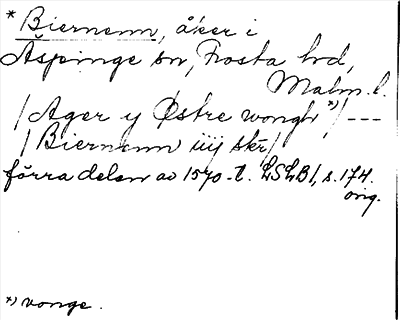 * Biernenn, åker i
Äspinge sn, Frosta hd,
Malm. l.
/Ager y Østre wongh *)/ ---
/Biernenn iiij skr/
förra delen av 1570-t. LSLB1, s. 174.
orig.
*) vonge.